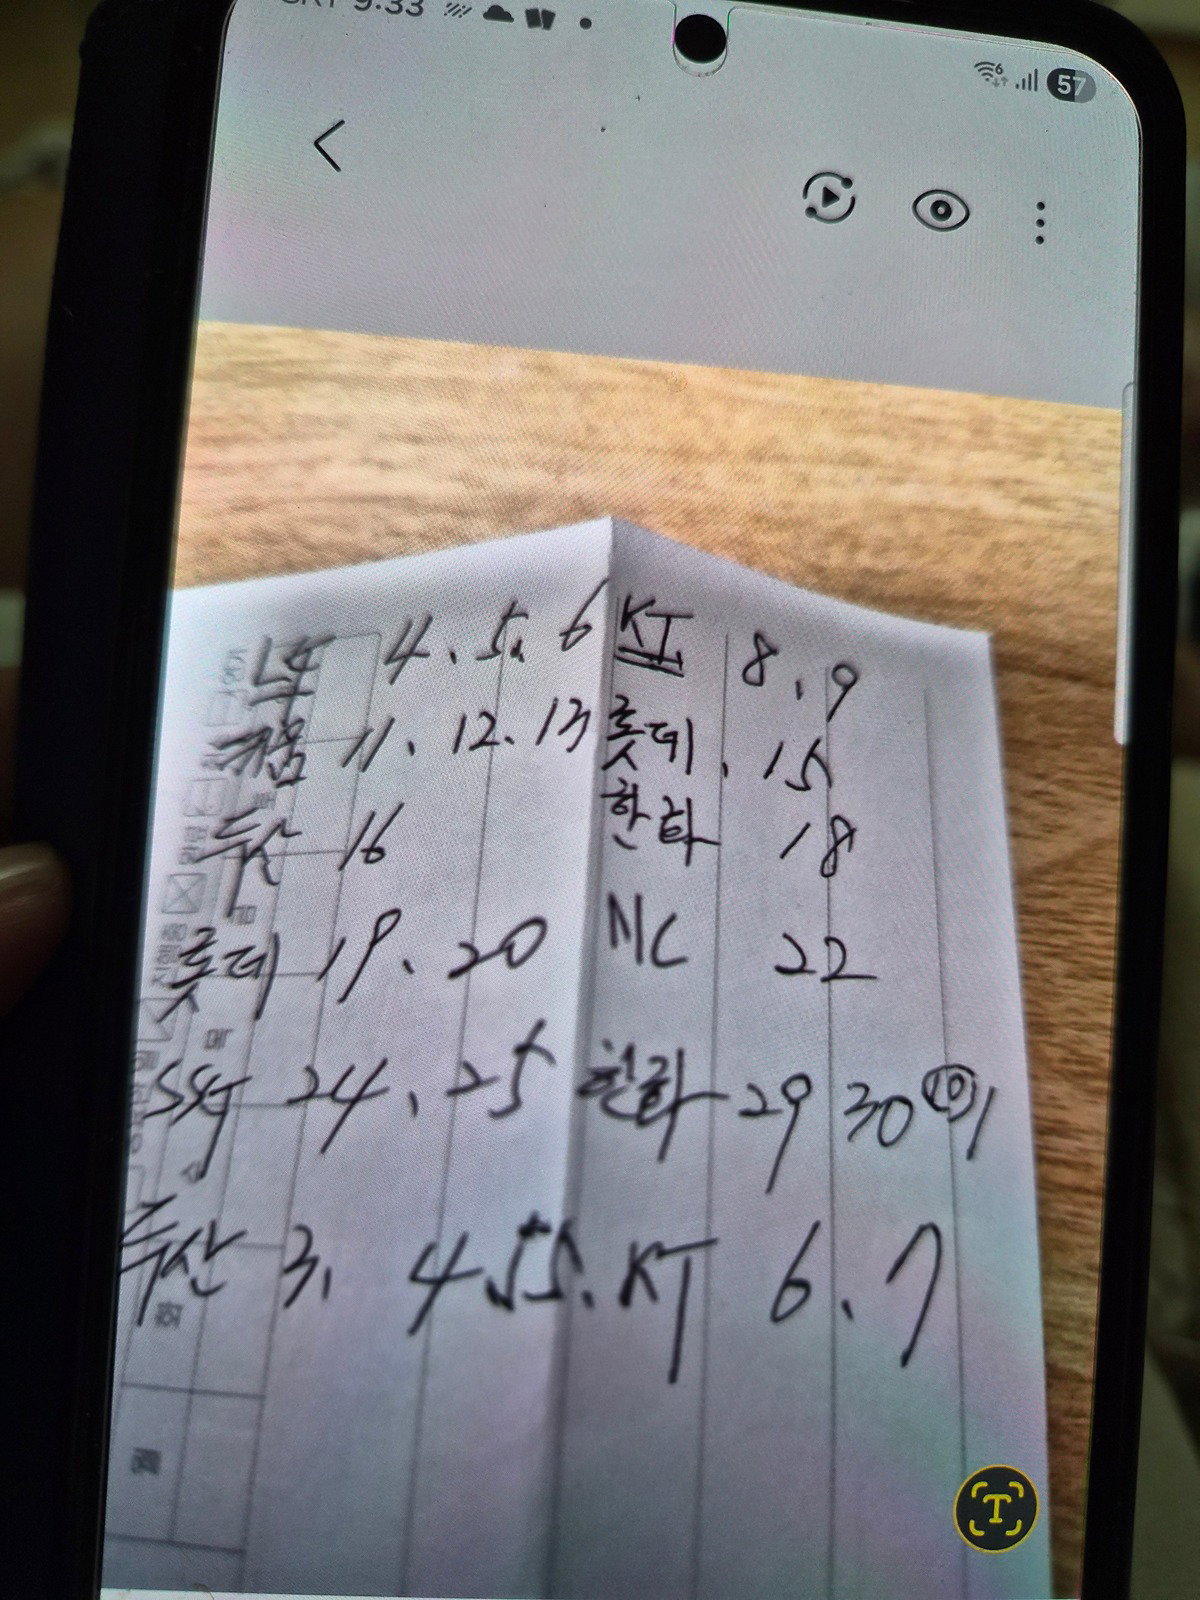 SKT 9:33
6
57
LG 4. 5. 6 KT 8. 9
키움 11. 12. 13 롯데. 15
두산 16 한화 18
롯데 19. 20 NC 22
SSG 24. 25 한화 29 30 10/1
두산 3. 4. 5. KT 6. 7
T